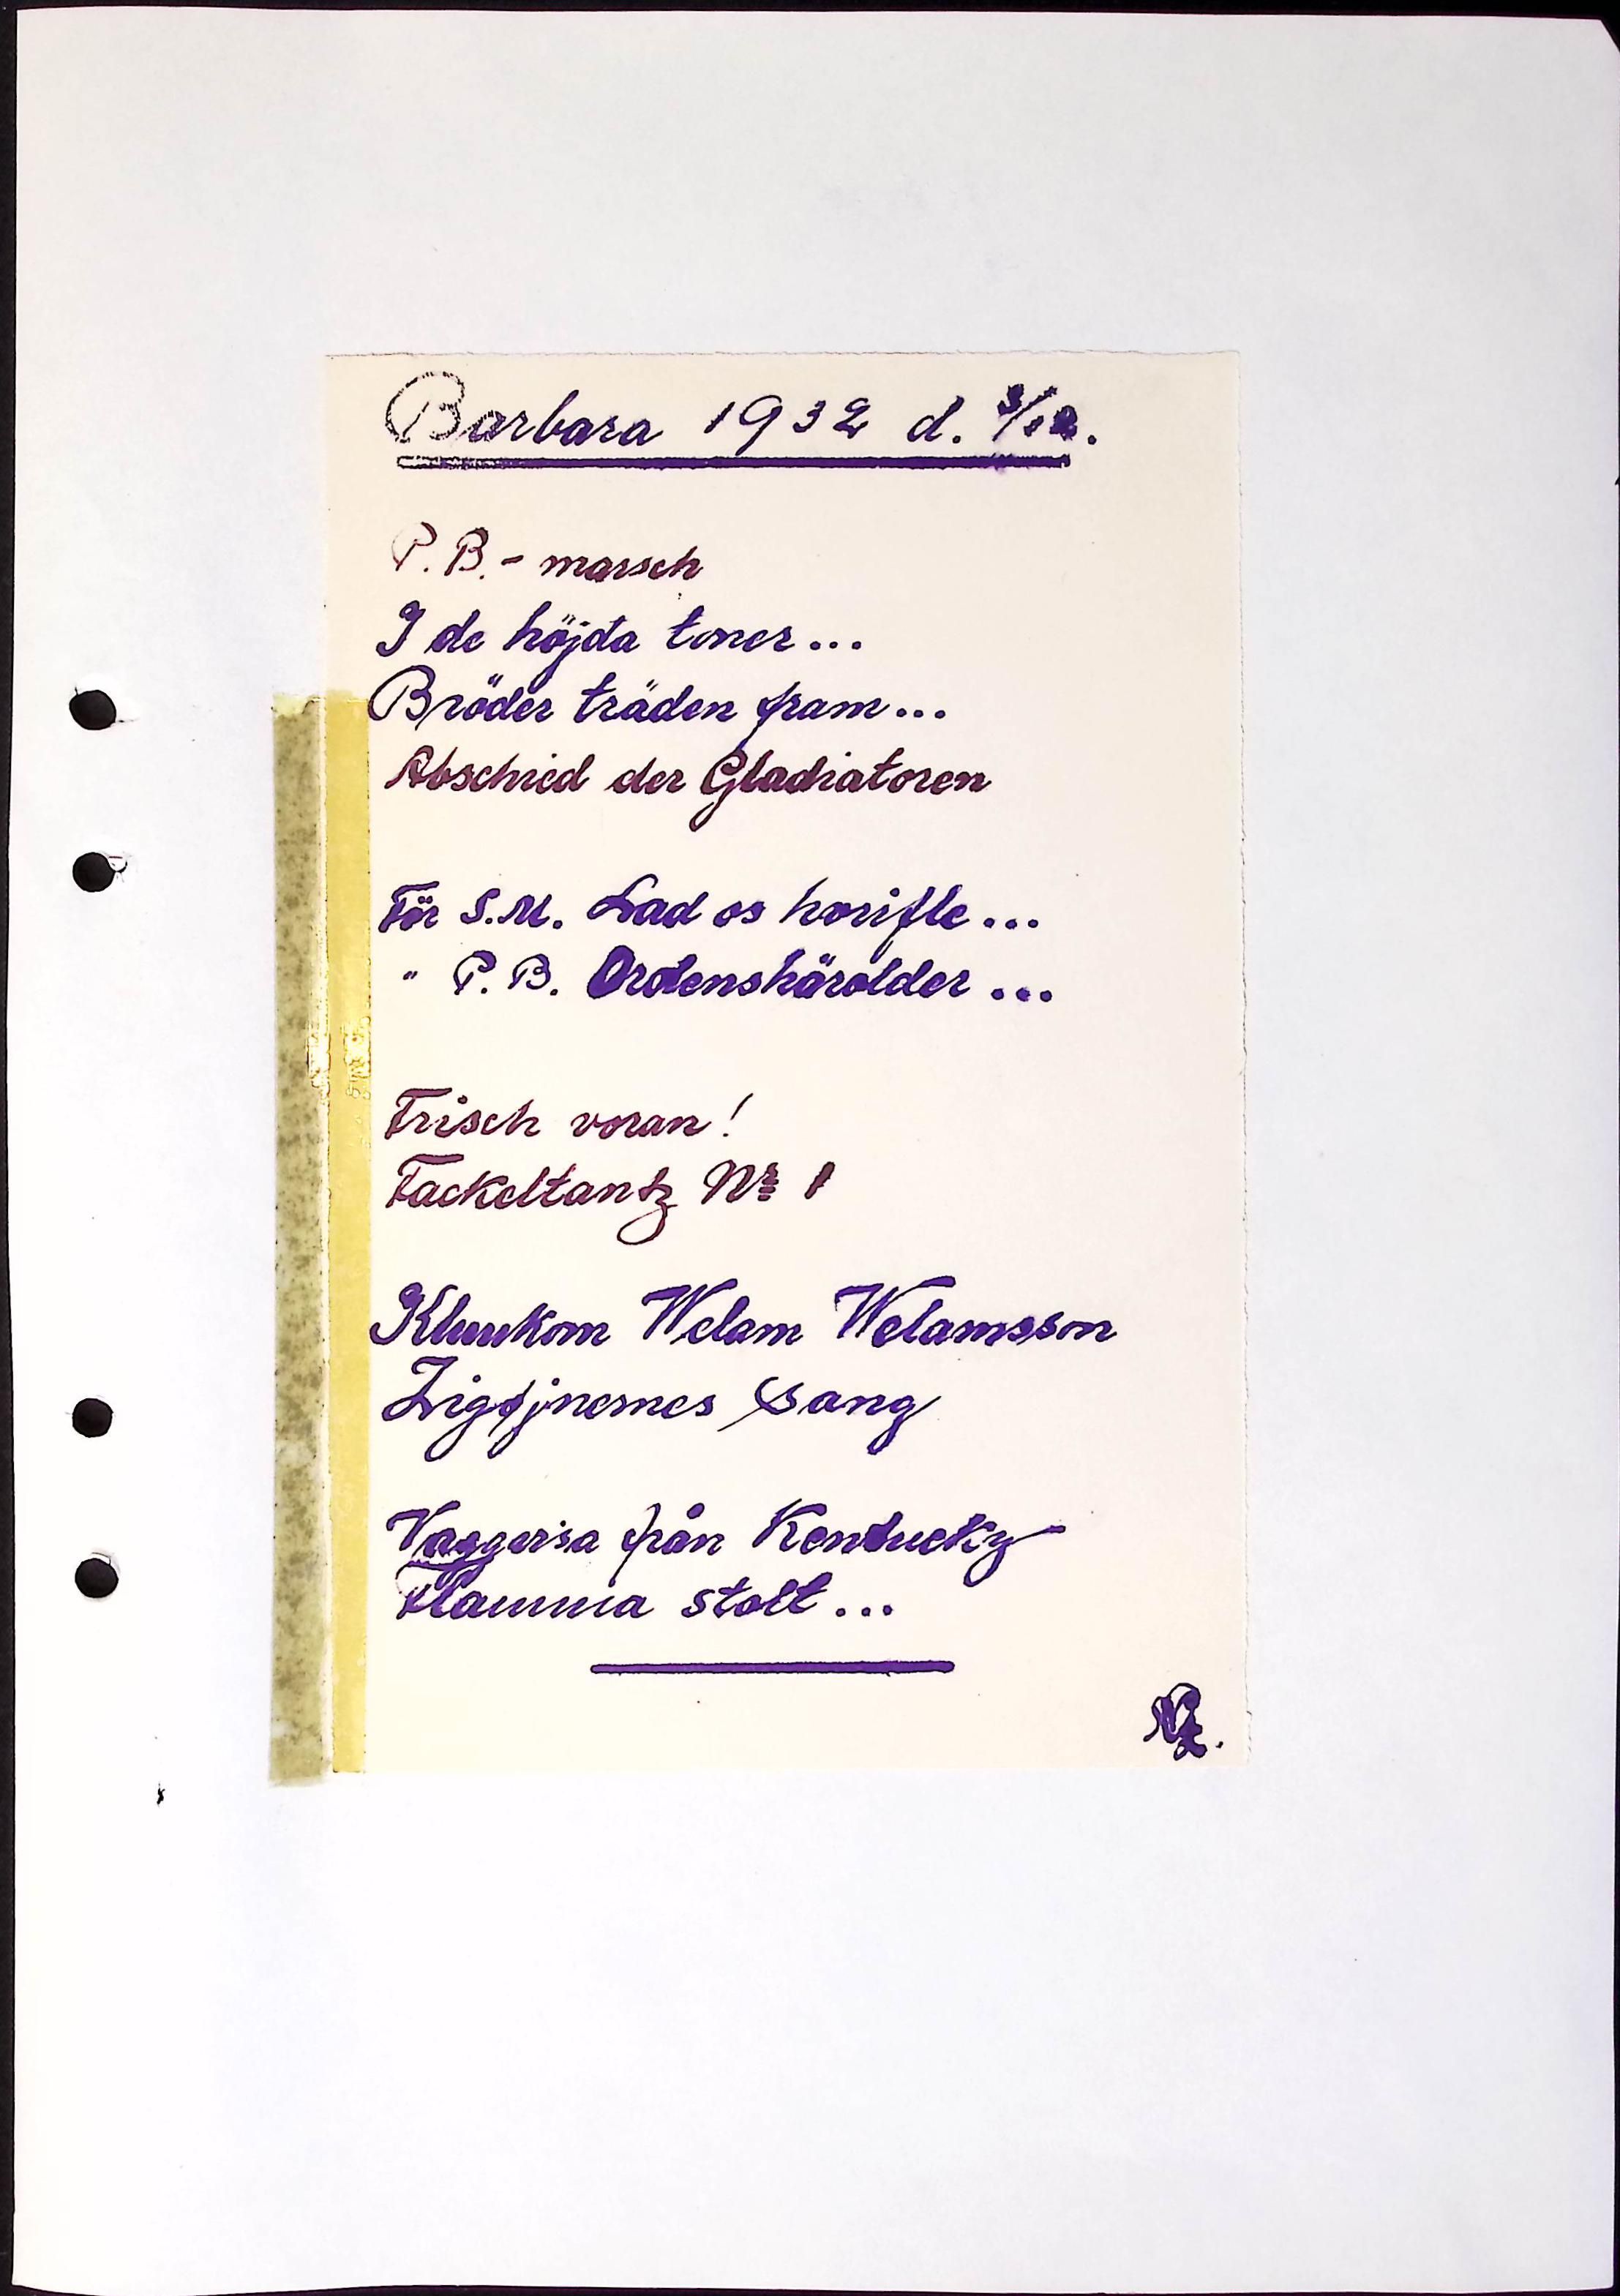 Barbara 1932 d. 3/12.
P.B.- marsch
I de höjda toner...
Bröder träden fram...
Abschied der Gladiatoren
För S.M. Lad os horifle...
" P.B. Ordenshärolder...
Frisch voran!
Fackeltantz Nr 1
Welam Welamsson
Zigøjnernes Sang
Vaggvisa från Kentucky
Flamma stolt...